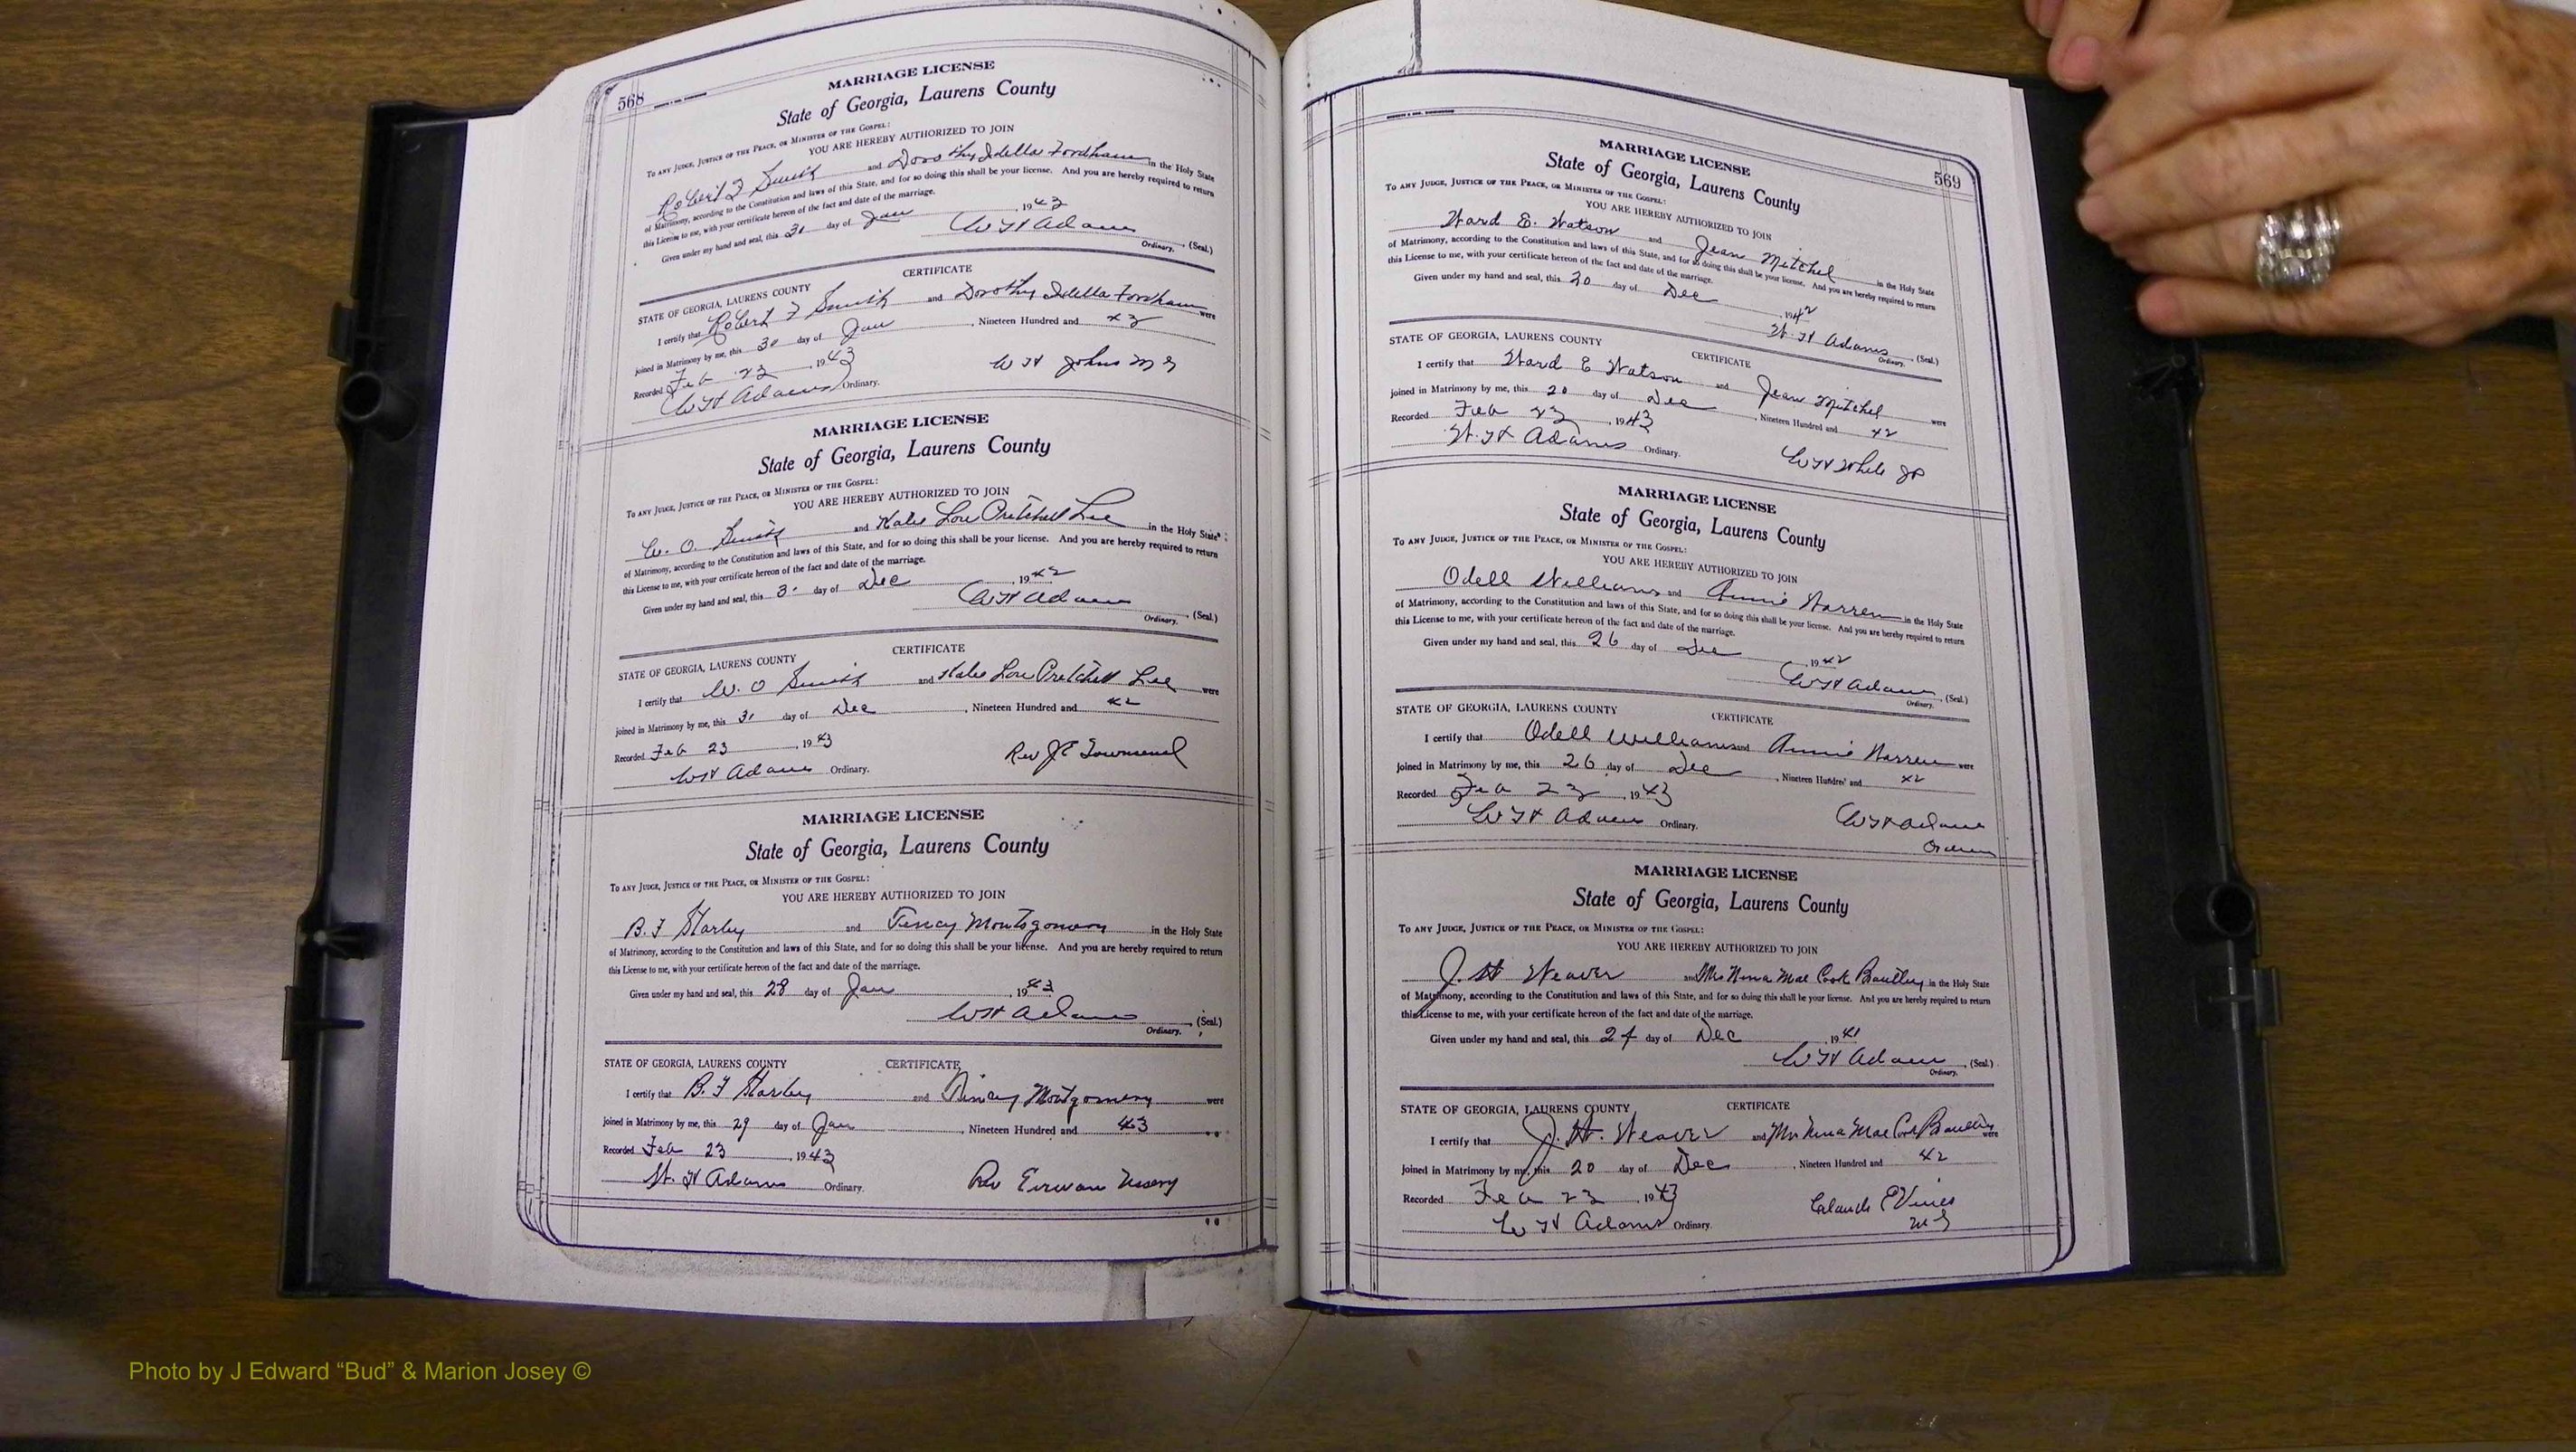 568
MARRIAGE LICENSE
State of Georgia, Laurens County
To ANY JUDGE, JUSTICE OF THE PEACE, OR MINISTER OF THE GOSPEL:
YOU ARE HEREBY AUTHORIZED TO JOIN
Robert F Smith and Dorothy Idella Fordham in the Holy State
of Matrimony, according to the Constitution and laws of this State, and for so doing this shall be your license. And you are hereby required to return
this License to me, with your certificate hereon of the fact and date of the marriage.
Given under my hand and seal, this day of Jan, 1943
W H Adams (Seal.)
Ordinary.
CERTIFICATE
STATE OF GEORGIA, LAURENS COUNTY
I certify that Robert F Smith and Dorothy Idella Fordham were
joined in Matrimony by me, this 30 day of Jan, Nineteen Hundred and 43
Recorded Feb 23, 1943
W H Adams Ordinary.
W H Johns M G
MARRIAGE LICENSE
State of Georgia, Laurens County
To ANY JUDGE, JUSTICE OF THE PEACE, OR MINISTER OF THE GOSPEL:
YOU ARE HEREBY AUTHORIZED TO JOIN
W. O. Smith and Katie Lou Pritchett Lee in the Holy State
of Matrimony, according to the Constitution and laws of this State, and for so doing this shall be your license. And you are hereby required to return
this License to me, with your certificate hereon of the fact and date of the marriage.
Given under my hand and seal, this day of Dec, 1942
W H Adams (Seal.)
Ordinary.
CERTIFICATE
STATE OF GEORGIA, LAURENS COUNTY
I certify that W. O Smith and Katie Lou Pritchett Lee were
joined in Matrimony by me, this 31 day of Dec, Nineteen Hundred and 42
Recorded Feb 23, 1943
W H Adams Ordinary.
Rev J E Townsend
MARRIAGE LICENSE
State of Georgia, Laurens County
To ANY JUDGE, JUSTICE OF THE PEACE, OR MINISTER OF THE GOSPEL:
YOU ARE HEREBY AUTHORIZED TO JOIN
B. F Starley and Montgomery in the Holy State
of Matrimony, according to the Constitution and laws of this State, and for so doing this shall be your license. And you are hereby required to return
this License to me, with your certificate hereon of the fact and date of the marriage.
Given under my hand and seal, this 28 day of Jan, 1943
W H Adams (Seal.)
Ordinary.
STATE OF GEORGIA, LAURENS COUNTY CERTIFICATE
I certify that B. F Starley and Montgomery were
joined in Matrimony by me, this 29 day of Jan, Nineteen Hundred and 43
Recorded Feb 23, 1943
W. H Adams Ordinary.
Rev
569
MARRIAGE LICENSE
State of Georgia, Laurens County
To ANY JUDGE, JUSTICE OF THE PEACE, OR MINISTER OF THE GOSPEL:
YOU ARE HEREBY AUTHORIZED TO JOIN
Ward E. Watson and Jean Mitchel in the Holy State
of Matrimony, according to the Constitution and laws of this State, and for so doing this shall be your license. And you are hereby required to return
this License to me, with your certificate hereon of the fact and date of the marriage.
Given under my hand and seal, this 20 day of Dec, 1942
W. H Adams (Seal.)
Ordinary.
STATE OF GEORGIA, LAURENS COUNTY CERTIFICATE
I certify that Ward E Watson and Jean Mitchel were
joined in Matrimony by me, this 20 day of Dec, Nineteen Hundred and 42
Recorded Feb 23, 1943
W. H Adams Ordinary.
W H White JP
MARRIAGE LICENSE
State of Georgia, Laurens County
To ANY JUDGE, JUSTICE OF THE PEACE, OR MINISTER OF THE GOSPEL:
YOU ARE HEREBY AUTHORIZED TO JOIN
Odell Williams and Annie Warren in the Holy State
of Matrimony, according to the Constitution and laws of this State, and for so doing this shall be your license. And you are hereby required to return
this License to me, with your certificate hereon of the fact and date of the marriage.
Given under my hand and seal, this 26 day of Dec, 1942
W H Adams (Seal.)
Ordinary.
STATE OF GEORGIA, LAURENS COUNTY CERTIFICATE
I certify that Odell Williams and Annie Warren were
joined in Matrimony by me, this 26 day of Dec, Nineteen Hundred and 42
Recorded Feb 23, 1943
W H Adams Ordinary.
W H Adams
MARRIAGE LICENSE
State of Georgia, Laurens County
To ANY JUDGE, JUSTICE OF THE PEACE, OR MINISTER OF THE GOSPEL:
YOU ARE HEREBY AUTHORIZED TO JOIN
J. H Weaver and Mrs Nina Mae Cook Brantley in the Holy State
of Matrimony, according to the Constitution and laws of this State, and for so doing this shall be your license. And you are hereby required to return
this License to me, with your certificate hereon of the fact and date of the marriage.
Given under my hand and seal, this 24 day of Dec, 1941
W H Adams (Seal.)
Ordinary.
STATE OF GEORGIA, LAURENS COUNTY CERTIFICATE
I certify that J. H. Weaver and Mrs Nina Mae Cook Brantley were
joined in Matrimony by me, this 20 day of Dec, Nineteen Hundred and 42
Recorded Feb 23, 1943
W H Adams Ordinary.
Claude E Vines
M G
Photo by J Edward “Bud” & Marion Josey ©